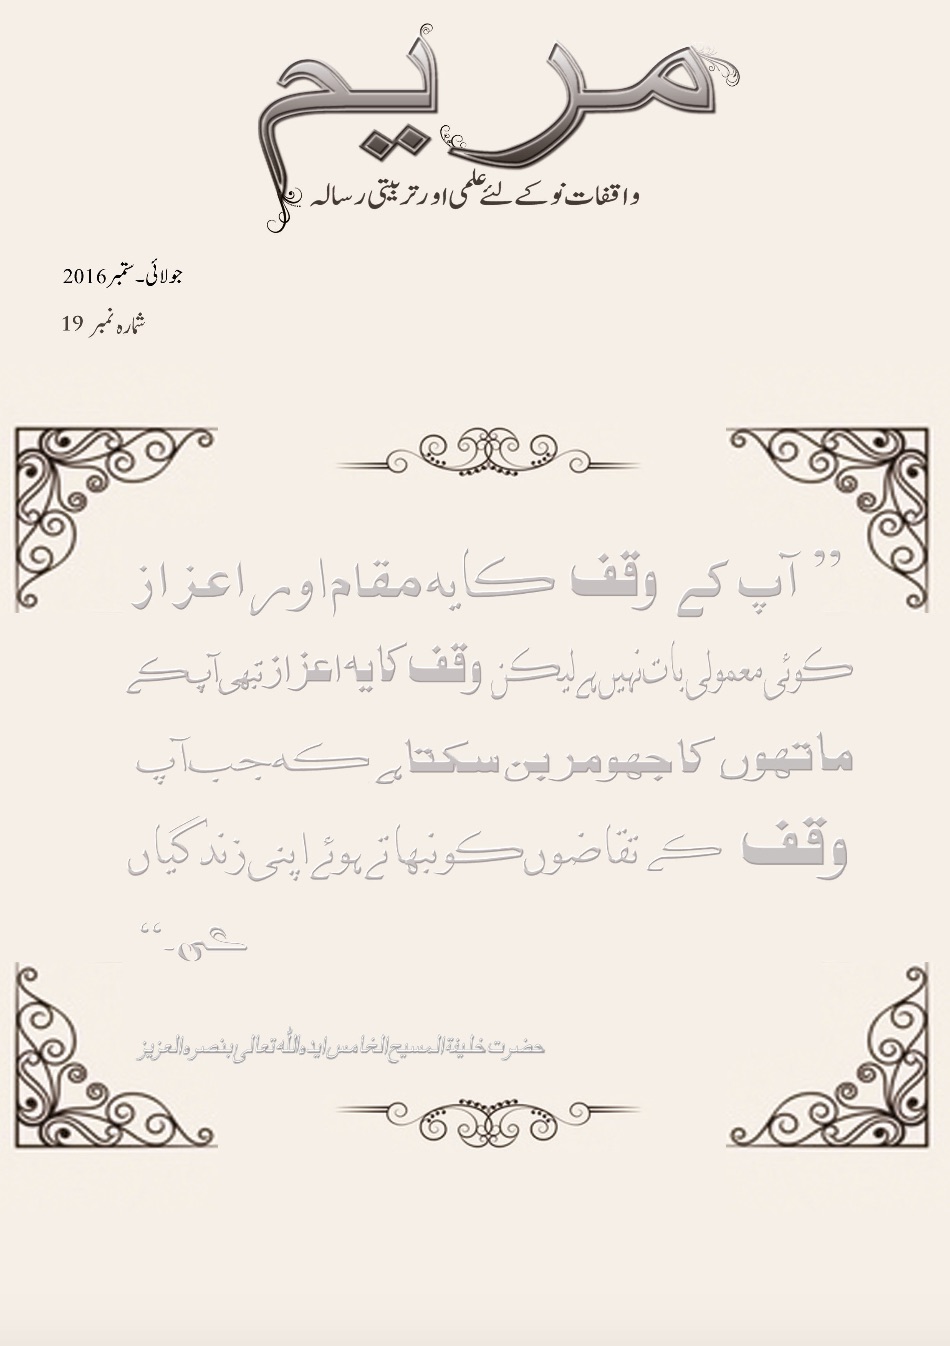 مریم
واقفات نو کے لئے علمی اور تربیتی رسالہ
جولائی۔ستمبر 2016
شمارہ نمبر 19
”آپ کے وقف کا یہ مقام اور اعزاز
کوئی معمولی بات نہیں ہے لیکن وقف کا یہ اعزاز تبھی آپ کے
ماتھوں کا جھومر بن سکتا ہے کہ جب آپ
وقف کے تقاضوں کو نبھاتے ہوئے اپنی زندگیاں
۔“
حضرت خلیفۃ المسیح الخامس ایدہ اللہ تعالیٰ بنصرہ العزیز